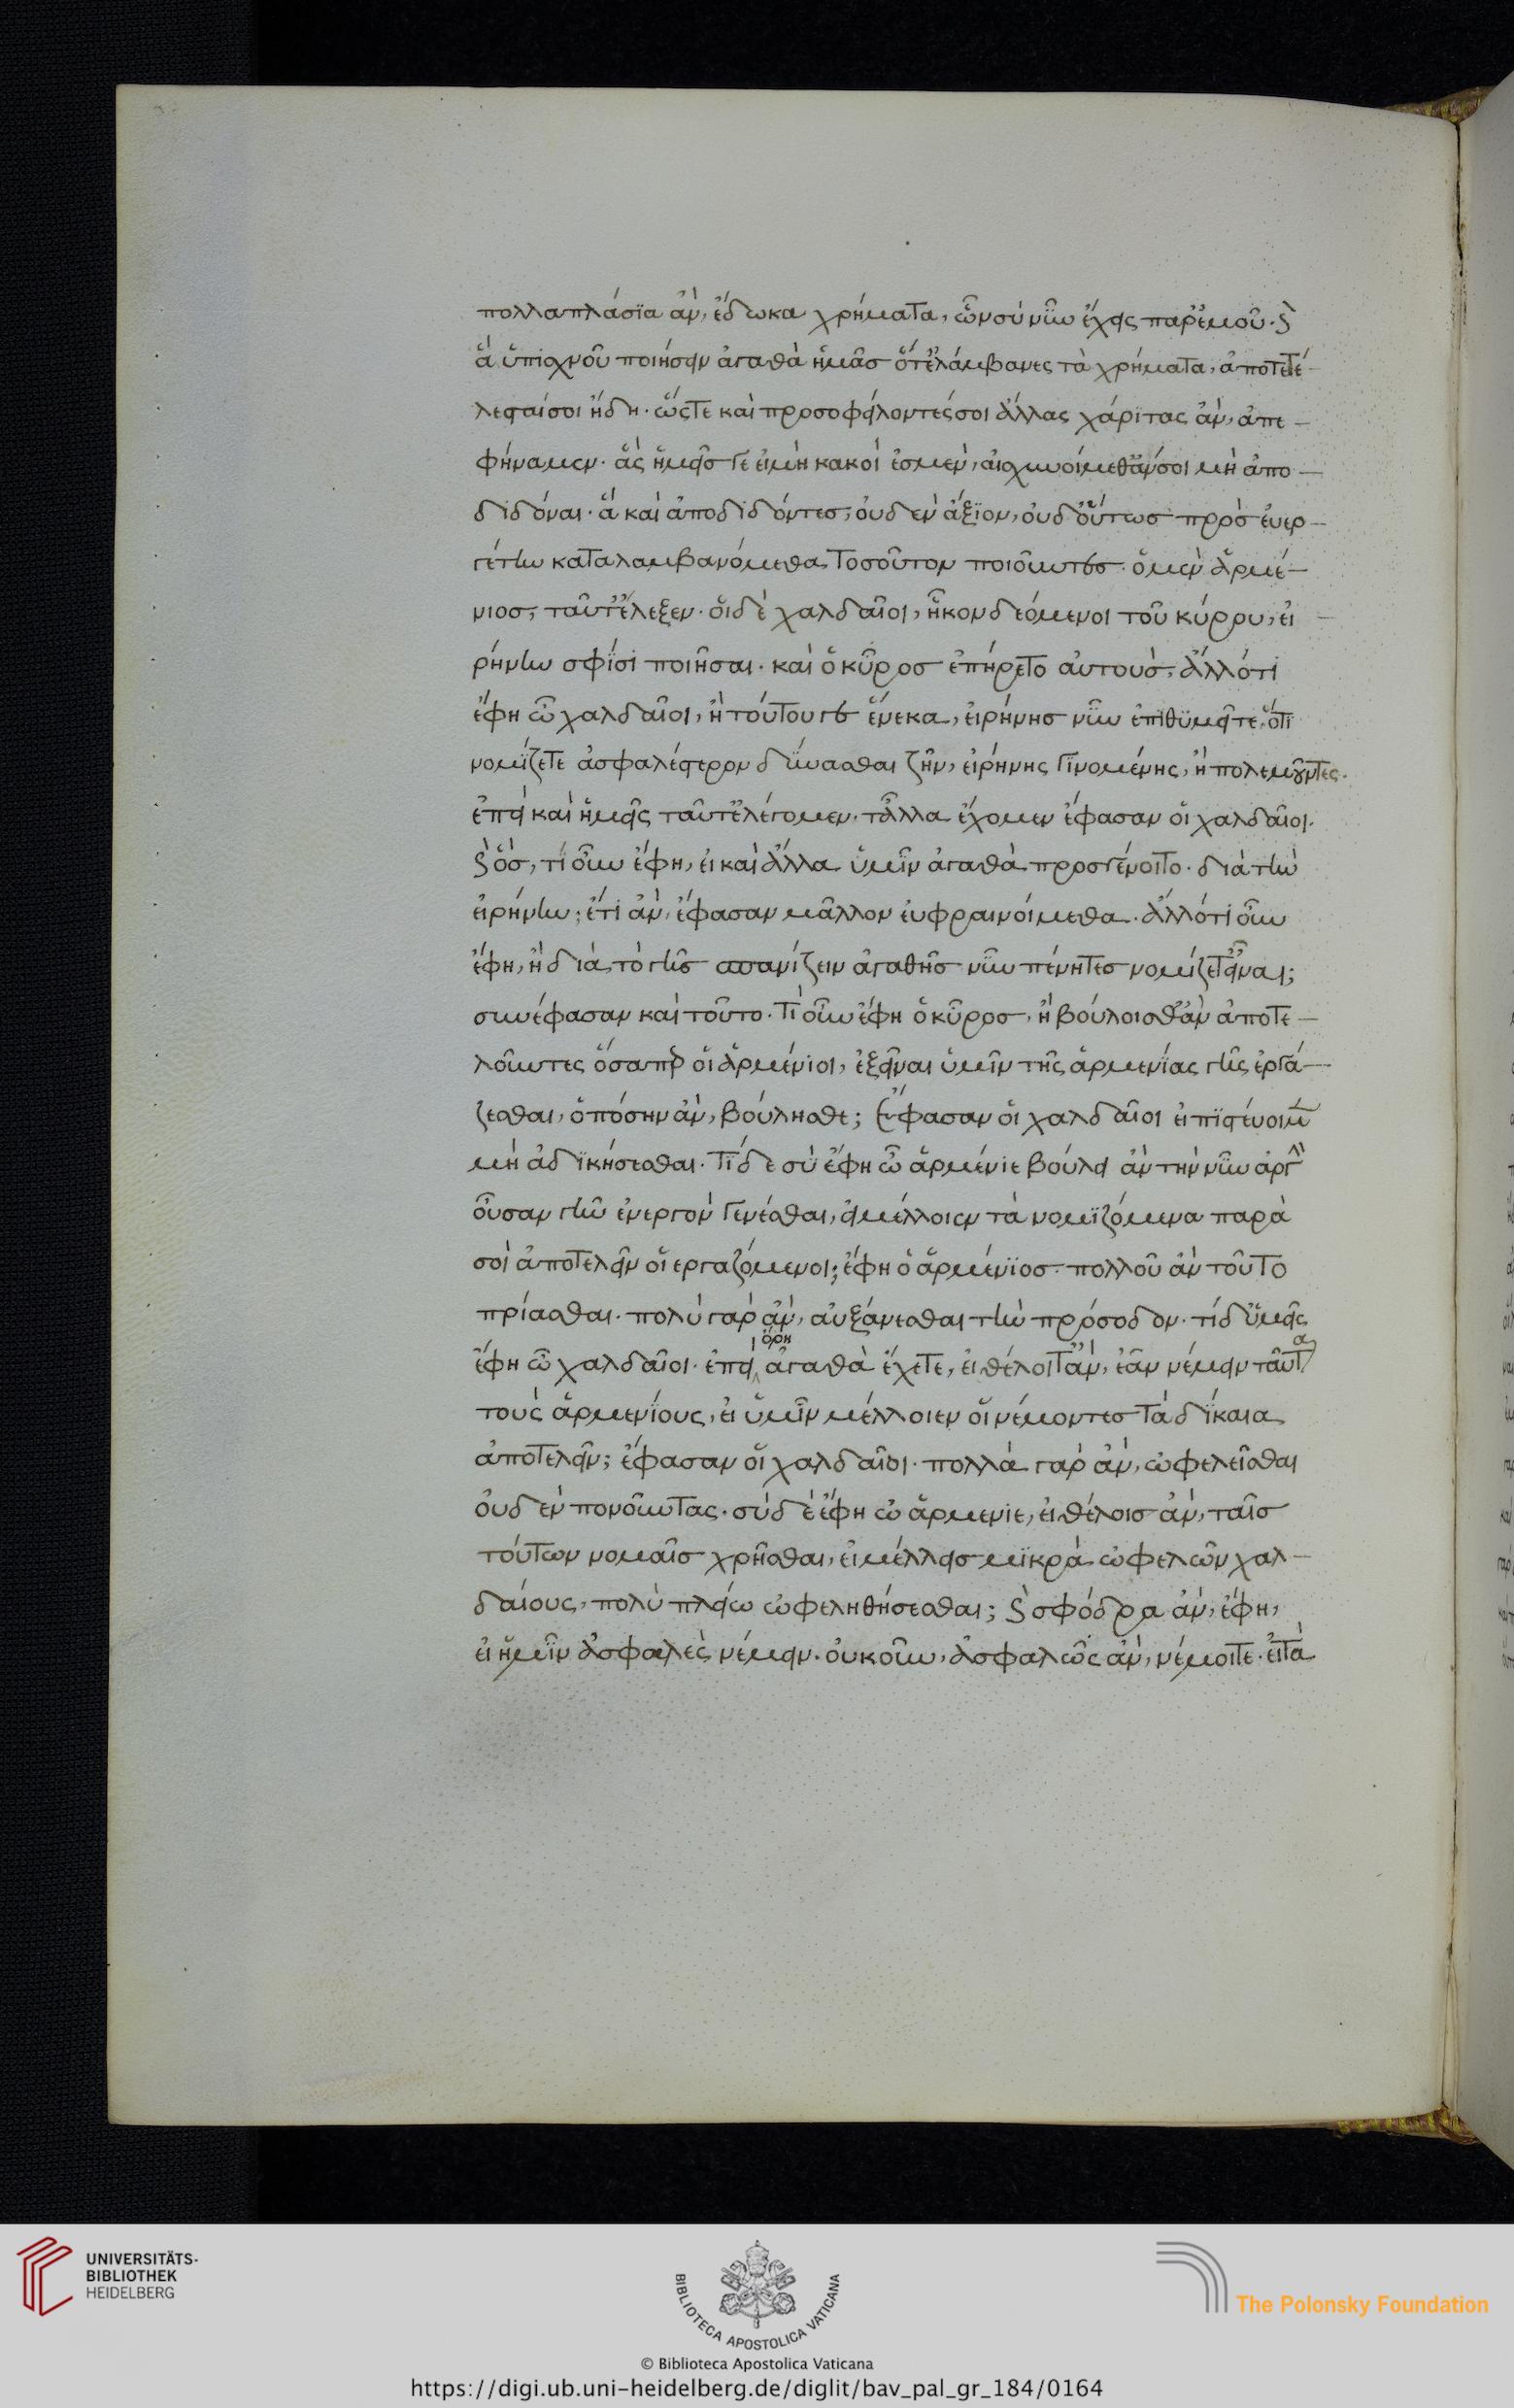 πολλαπλάσϊα ἂν, ἔδωκα χρήματα, ὧν σὺ νῦν ἔχεις παρ' ἐμοῦ· καὶ
ἃ ὑπισχνοῦ ποιήσειν ἀγαθὰ ἡμᾶς ὅτ' ἐλάμβανες τὰ χρήματα, ἀποτετέ-
λεσταί σοι ἤδη· ὥστε καὶ προσοφείλοντές σοι ἄλλας χάριτας ἂν, ἀπε-
φήναμεν· ἃς ἡμεῖς γε εἰ μὴ κακοί ἐσμεν, αἰσχυνοίμεθ' ἄν σοι μὴ ἀπο-
διδόναι· ἃ καὶ ἀποδιδόντες, οὐδὲν ἄξιον, οὐδ' οὕτως πρὸς εὐερ-
γέτην καταλαμβανόμεθα τοσοῦτον ποιοῦντες· ὁ μὲν ἀρμέ-
νιος, ταῦτ' ἔλεξεν· οἱ δὲ χαλδαῖοι, ἧκον δεόμενοι τοῦ κύρου, εἰ-
ρήνην σφίσι ποιῆσαι· καὶ ὁ κῦρος ἐπήρετο αὐτούς, ἄλλό τι
ἔφη ὦ χαλδαῖοι, ἢ τούτου γε ἕνεκα, εἰρήνης νῦν ἐπιθϋμεῖτε, ὅτι
νομϊζετε ἀσφαλέστερον δύνασθαι ζῆν, εἰρήνης γϊνομένης, ἢ πολεμοῦντες·
ἐπεὶ καὶ ἡμεῖς ταῦτ' ἐλέγομεν· τἄλλα ἔχομεν ἔφασαν οἱ χαλδαῖοι·
καὶ ὃς, τί οὖν ἔφη, εἰ καὶ ἄλλα ὑμῖν ἀγαθὰ προσγένοιτο· διὰ τὴν
εἰρήνην; ἔτι ἂν, ἔφασαν μᾶλλον εὐφραινοίμεθα· ἄλλό τι οὖν
ἔφη, ἢ διὰ τὸ γῆς σπανίζειν ἀγαθῆς νῦν πένητες νομίζετ' εἶναι;
συνέφασαν καὶ τοῦτο· Τί οὖν ἔφη ὁ κῦρος, ἢ βούλοισθ' ἂν ἀποτε-
λοῦντες ὅσα περ οἱ ἀρμένιοι, ἐξεῖναι ὑμῖν τῆς ἀρμενίας γῆς ἐργά-
ζεσθαι, ὁπόσην ἂν, βούλησθε; ἔφασαν οἱ χαλδαῖοι εἰ πϊστεύοιμεν
μὴ ἀδϊκήσεσθαι· Τί δὲ σὺ ἔφη ὦ ἀρμένιε βούλει ἂν τὴν νῦν ἀργὴν
οὖσαν γῆν ἐνεργὸν γενέσθαι, εἰ μέλλοιεν τὰ νομϊζόμενα παρὰ
σοὶ ἀποτελεῖν οἱ εργαζόμενοι; ἔφη ὁ ἀρμένϊος· πολλοῦ ἂν τοῦτο
πρίασθαι· πολὺ γὰρ ἂν, αὐξάνεσθαι τὴν πρόσοδον· τί δ' ὑμεῖς
ἔφη ὦ χαλδαῖοι· ἐπεὶ ὄρη ἀγαθὰ ἔχετε, εἰ θέλοιτ' ἂν, ἐᾶν νέμειν ταῦτα
τοὺς ἀρμενίους, εἰ ὑμῖν μέλλοιεν οἱ νέμοντες τὰ δϊκαια
ἀποτελεῖν; ἔφασαν οἱ χαλδαῖοι· πολλὰ γὰρ ἂν, ὠφελεῖσθαι
οὐδὲν πονοῦντας· σὺ δὲ ἔφη ὦ ἀρμενιε, εἰ θέλοις ἂν, ταῖς
τούτων νομαῖς χρῆσθαι, εἰ μέλλεις μϊκρὰ ὠφελῶν χαλ-
δαίους, πολὺ πλείω ὠφεληθήσεσθαι; καὶ σφόδρα ἂν, ἔφη,
εἰ ἡμῖν ἀσφαλὲς νέμειν· οὐκοῦν, ἀσφαλῶς ἂν, νέμοιτε· εἰ τὰ
UNIVERSITÄTS-
BIBLIOTHEK
HEIDELBERG
BIBLIOTECA APOSTOLICA VATICANA
The Polonsky Foundation
© Biblioteca Apostolica Vaticana
https://digi.ub.uni-heidelberg.de/diglit/bav_pal_gr_184/0164